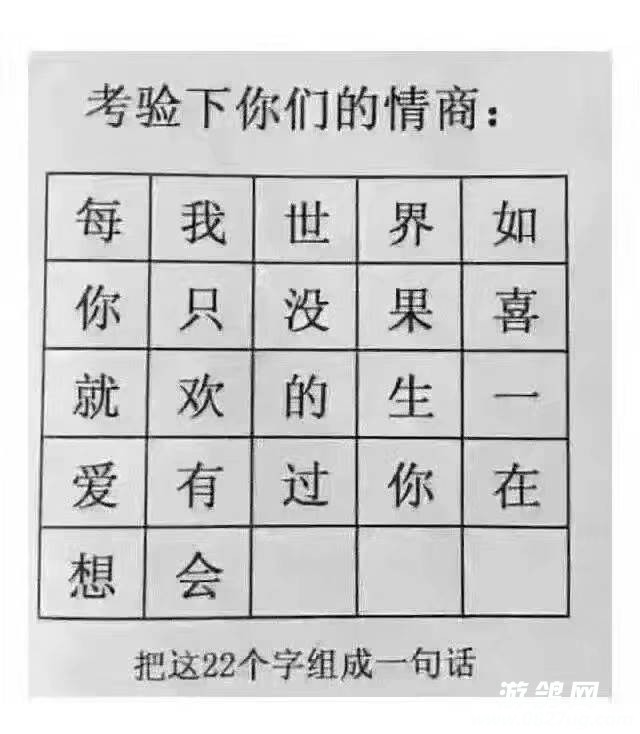 考验下你们的情商：
每 我 世 界 如
你 只 没 果 喜
就 欢 的 生 一
爱 有 过 你 在
想 会
把这22个字组成一句话
游鸽网